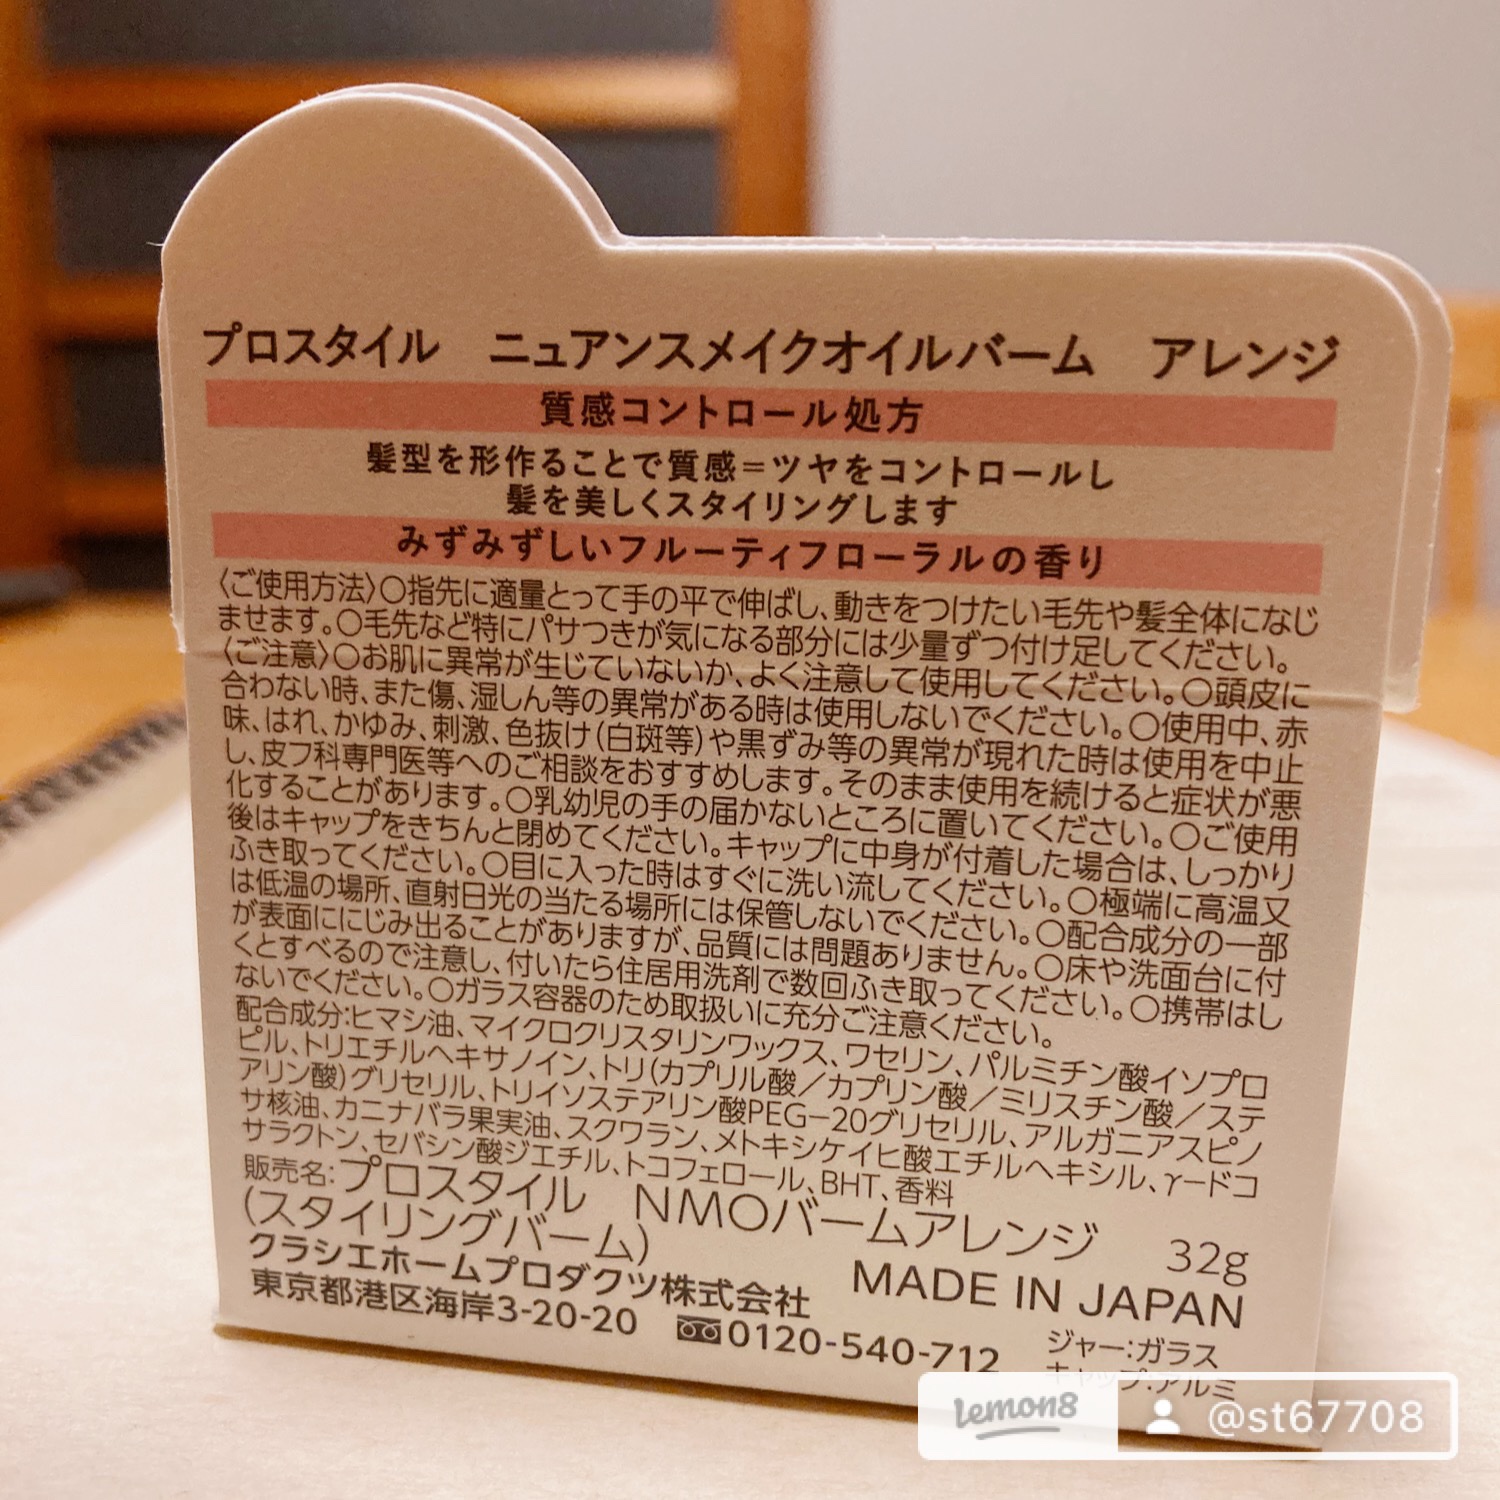 プロスタイル　ニュアンスメイクオイルバーム　アレンジ
質感コントロール処方
髪型を形作ることで質感＝ツヤをコントロールし
髪を美しくスタイリングします
みずみずしいフルーティフローラルの香り
〈ご使用方法〉○指先に適量とって手の平で伸ばし、動きをつけたい毛先や髪全体になじ
ませます。○毛先など特にパサつきが気になる部分には少量ずつ付け足してください。
〈ご注意〉○お肌に異常が生じていないか、よく注意して使用してください。○頭皮に
合わない時、また傷、湿しん等の異常がある時は使用しないでください。○使用中、赤
味、はれ、かゆみ、刺激、色抜け（白斑等）や黒ずみ等の異常が現れた時は使用を中止
し、皮フ科専門医等へのご相談をおすすめします。そのまま使用を続けると症状が悪
化することがあります。○乳幼児の手の届かないところに置いてください。○ご使用
後はキャップをきちんと閉めてください。キャップに中身が付着した場合は、しっかり
ふき取ってください。○目に入った時はすぐに洗い流してください。○極端に高温又
は低温の場所、直射日光の当たる場所には保管しないでください。○配合成分の一部
が表面ににじみ出ることがありますが、品質には問題ありません。○床や洗面台に付
くとすべるので注意し、付いたら住居用洗剤で数回ふき取ってください。○携帯はし
ないでください。○ガラス容器のため取扱いに充分ご注意ください。
配合成分:ヒマシ油、マイクロクリスタリンワックス、ワセリン、パルミチン酸イソプロ
ピル、トリエチルヘキサノイン、トリ(カプリル酸／カプリン酸／ミリスチン酸／ステ
アリン酸)グリセリル、トリイソステアリン酸PEG−20グリセリル、アルガニアスピノ
サ核油、カニナバラ果実油、スクワラン、メトキシケイヒ酸エチルヘキシル、γ−ドコ
サラクトン、セバシン酸ジエチル、トコフェロール、BHT、香料
販売名:プロスタイル　NMOバームアレンジ
(スタイリングバーム)　32g
クラシエホームプロダクツ株式会社　MADE IN JAPAN
東京都港区海岸3-20-20　0120-540-712
ジャー:ガラス
キャップ:アルミ
lemon8 @st67708